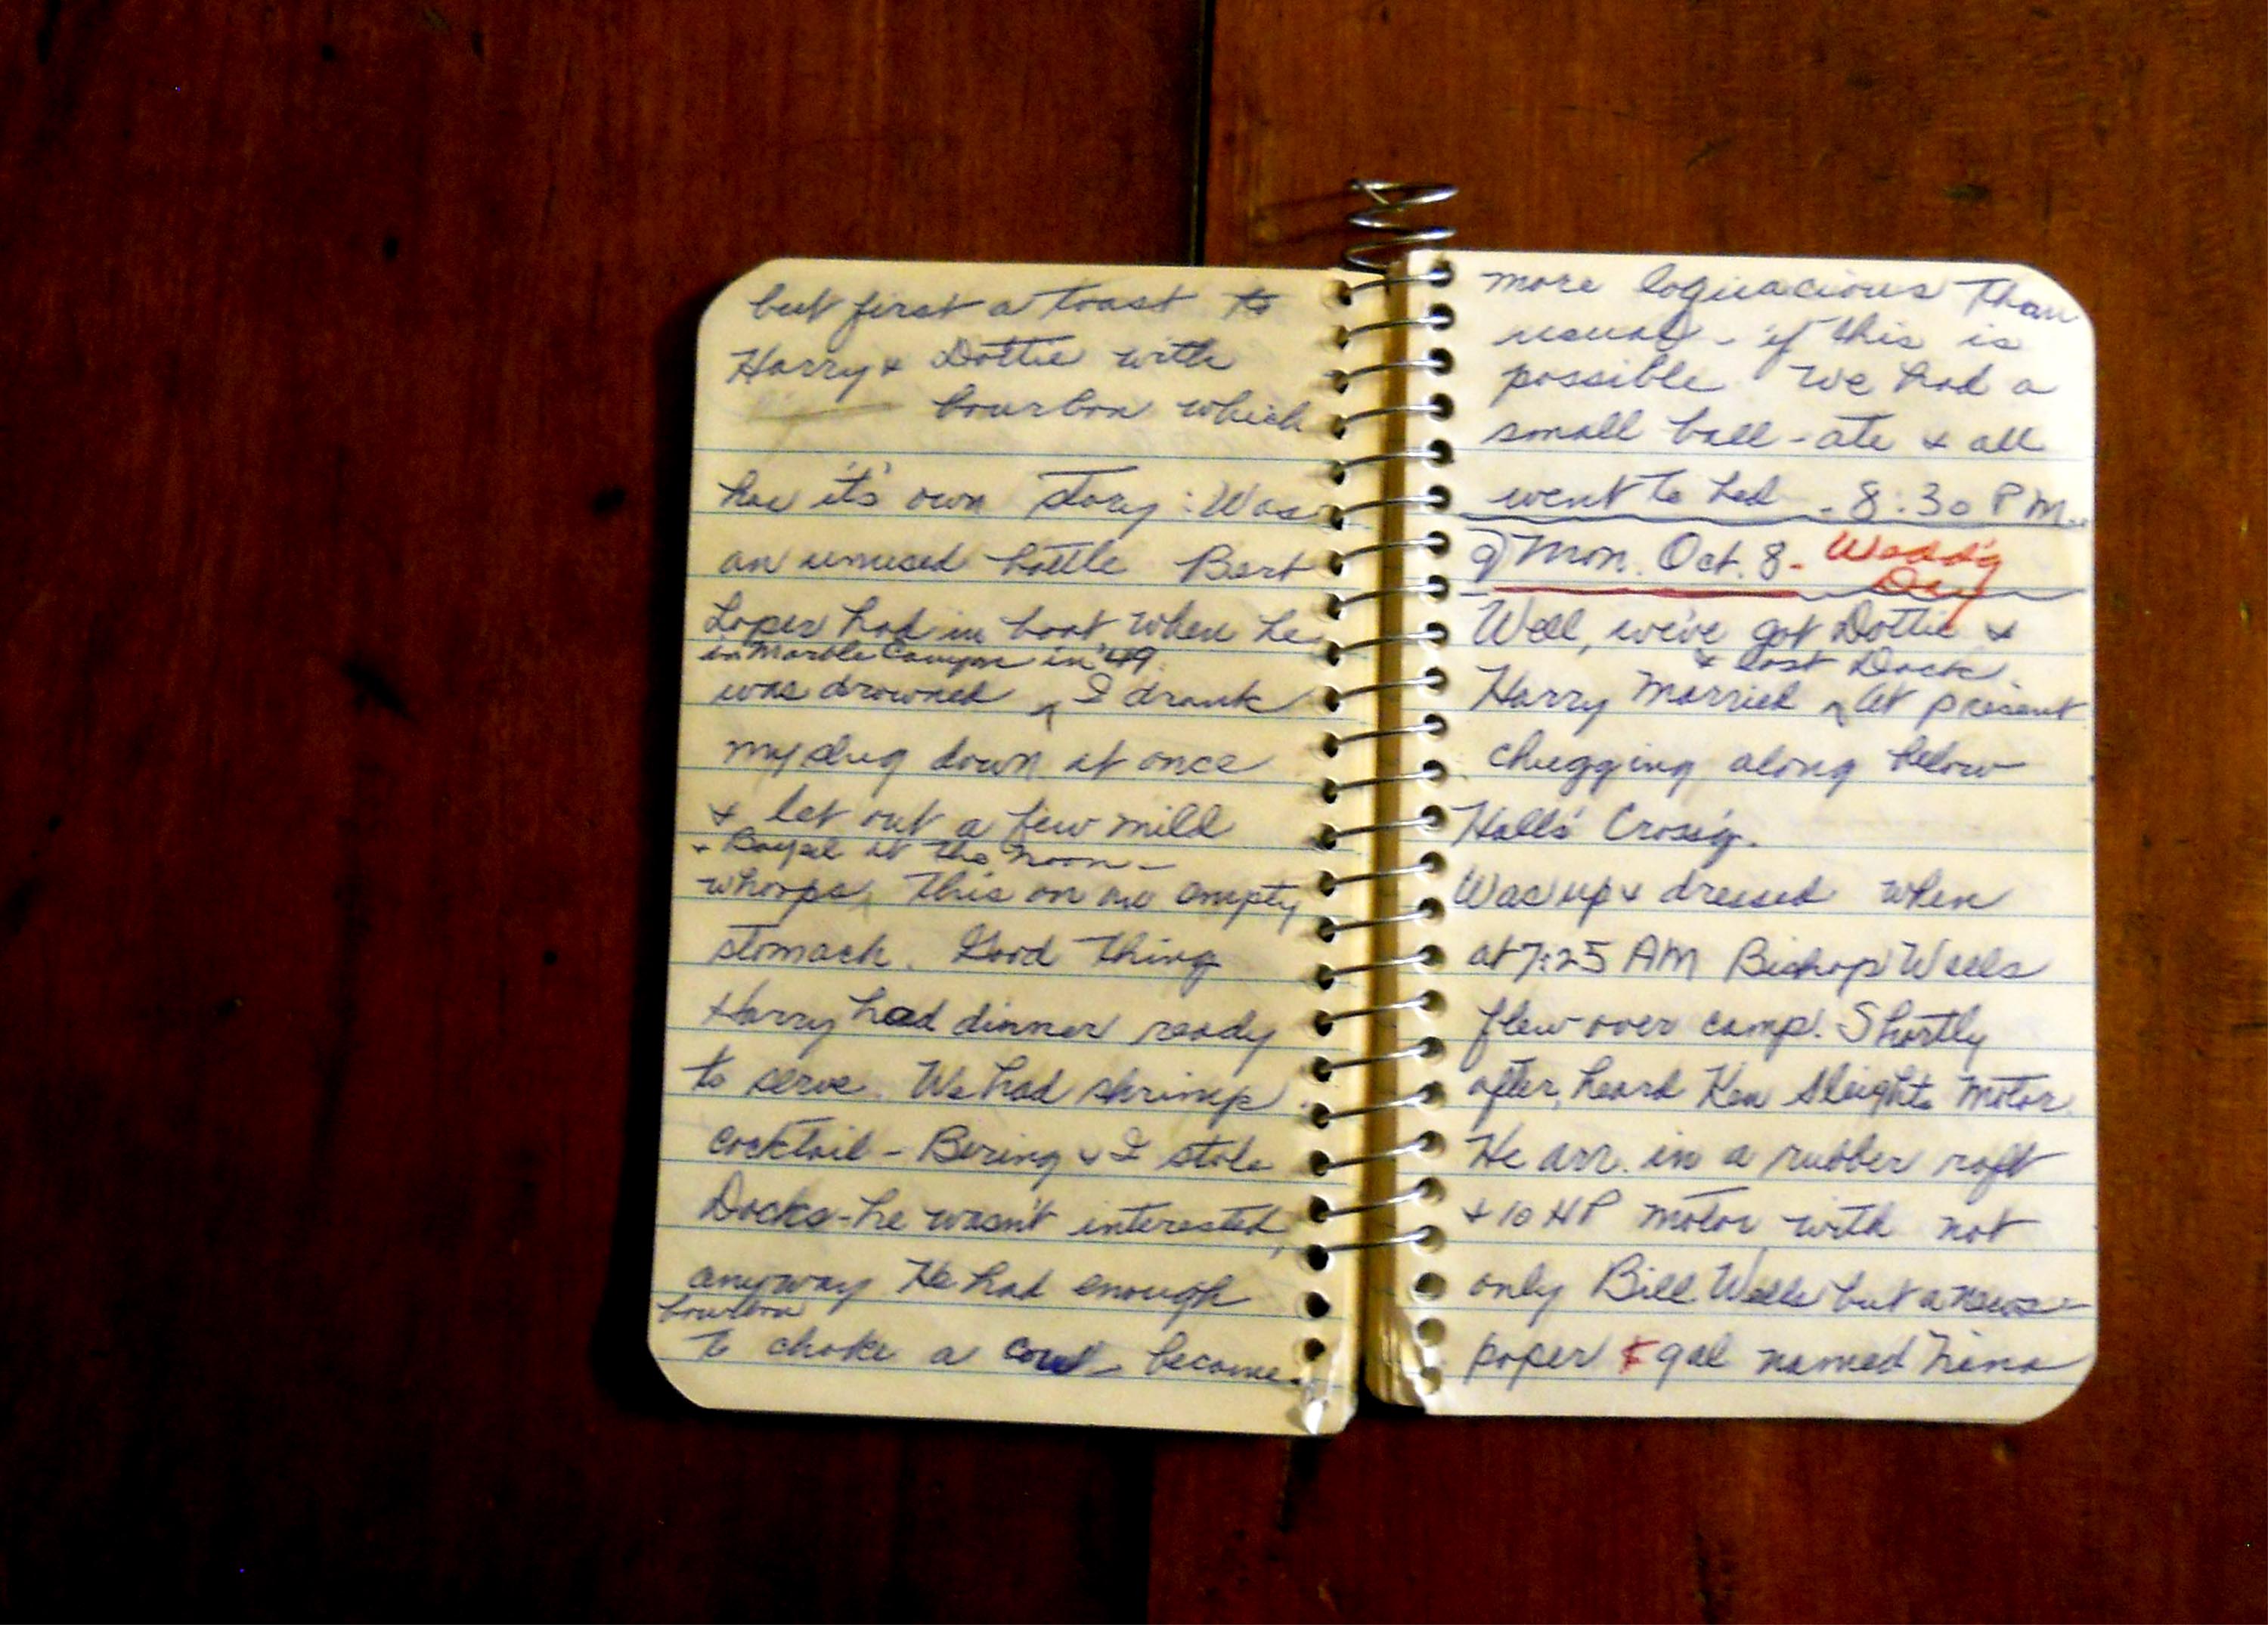 but first a toast to
Harry & Dottie with
bourbon which
has it's own story: Was
an unused bottle Bert
Loper had in boat when he
in Marble Canyon in '49.
was drowned ^ I drank
my slug down at once
& let out a few mild
+ Bayed at the moon -
whoops, this on an empty
stomach. Good thing
Harry had dinner ready
to serve. We had shrimp
cocktail - Bering & I stole
Docks - he wasn't interested,
anyway He had enough
bourbon
to choke a cow became
more loquacious than
usual - if this is
possible We had a
small ball - ate & all
went to bed - 8:30 PM.
9) Mon. Oct. 8 - Wedd'g
Day
Well, we've got Dottie &
& lost Dock.
Harry married ^ At present
chugging along below
Halls' Cros'g.
Was up & dressed when
at 7:25 AM Bishop Wells
flew over camp. Shortly
after, heard Ken Sleights motor.
He arr. in a rubber raft
+ 10 HP motor with not
only Bill Wells but a news-
paper gal named Nina